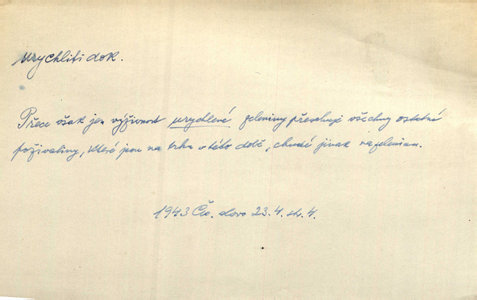 urychliti dok.
Přece však jen výživnost urydlené zeleniny převyšuje všechny ostatní
poživatiny, které jsou na trhu v této době, chudé jinak na zeleninu.
1943 Čes. slovo 23.4. str. 4.